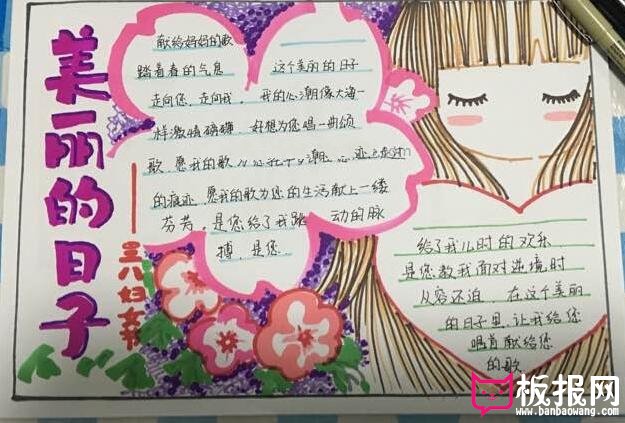 美丽的日子
三八妇女节
献给妈妈的歌
踏着春的气息 这个美丽的日子
走向您,走向我。 我的心潮像大海一
样激情磅礴 好想为您唱一曲颂
歌 愿我的歌 潮
的痕迹 愿我的歌为您的生活献上一缕
芬芳。是您给了我跳 动的脉
搏,是您
给了我儿时的欢乐
是您教我面对逆境时
从容还迫 在这个美丽
的日子里,让我给您
唱首献给您
的歌
板报网
www.banbaowang.com